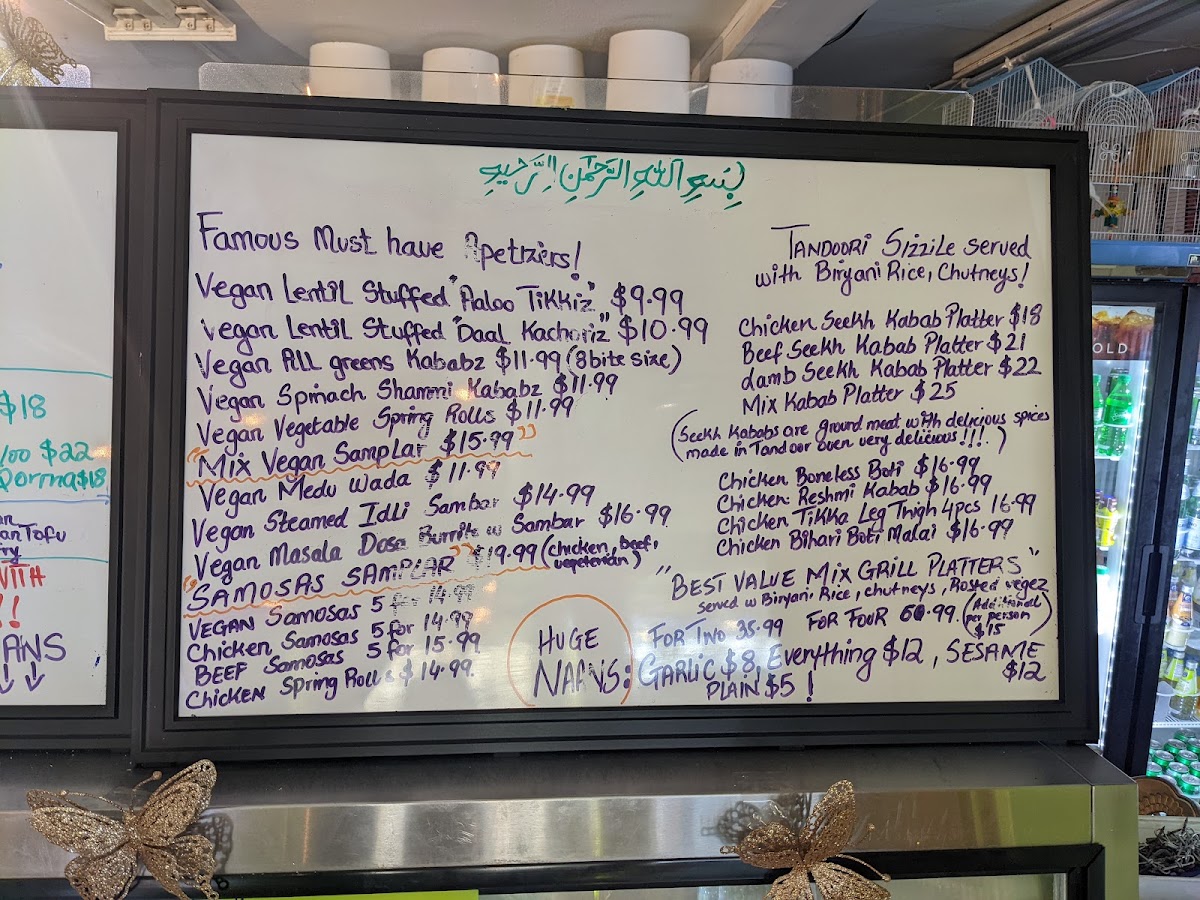 بِسْمِ اللهِ الرَّحْمٰنِ الرَّحِيمِ
Famous Must have Apetiziers!
Vegan Lentil Stuffed "Aaloo Tikkiz" $9.99
Vegan Lentil Stuffed "Daal Kachoriz" $10.99
Vegan All greens Kababz $11.99 (8 bite size)
Vegan Spinach Shammi Kababz $11.99
Vegan Vegetable Spring Rolls $11.99
"Mix Vegan Samplar $15.99"
Vegan Medu Wada $11.99
Vegan Steamed Idli Sambar $14.99
Vegan Masala Dosa Burrito w Sambar $16.99
"SAMOSAS SAMPLAR" $19.99 (chicken, beef, vegeterian)
VEGAN Samosas 5 for 14.99
Chicken Samosas 5 for 14.99
BEEF Samosas 5 for 15.99
Chicken Spring Rolls $14.99
TANDOORI Sizzile served
with Biryani Rice, Chutneys!
Chicken Seekh Kabab Platter $18
Beef Seekh Kabab Platter $21
Lamb Seekh Kabab Platter $22
Mix Kabab Platter $25
(Seekh Kababs are ground meat with delicious spices
made in Tandoor oven very delicious!!!.)
Chicken Boneless Boti $16.99
Chicken Reshmi Kabab $16.99
Chicken Tikka Leg Thigh 4pcs 16.99
Chicken Bihari Boti Malai $16.99
"BEST VALUE MIX GRILL PLATTERS"
served w Biryani Rice, chutneys, Rosted vegez
For Two 35.99 For Four 69.99 (Additional per person $15
HUGE NAANS: GARLIC $8, Everything $12, SESAME $12
PLAIN $5 !
$18
loo $22
Qorma $18
Tofu
WITH
!!
ANS
OLD